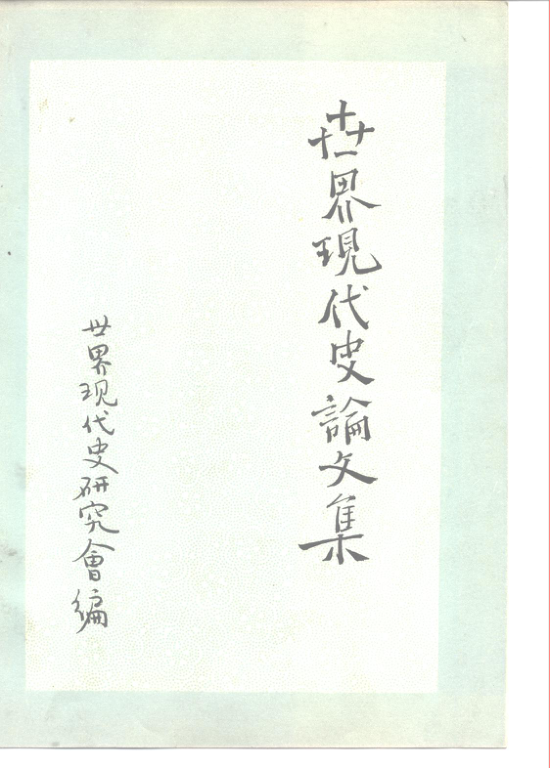 世界現代史論文集
世界现代史研究會编